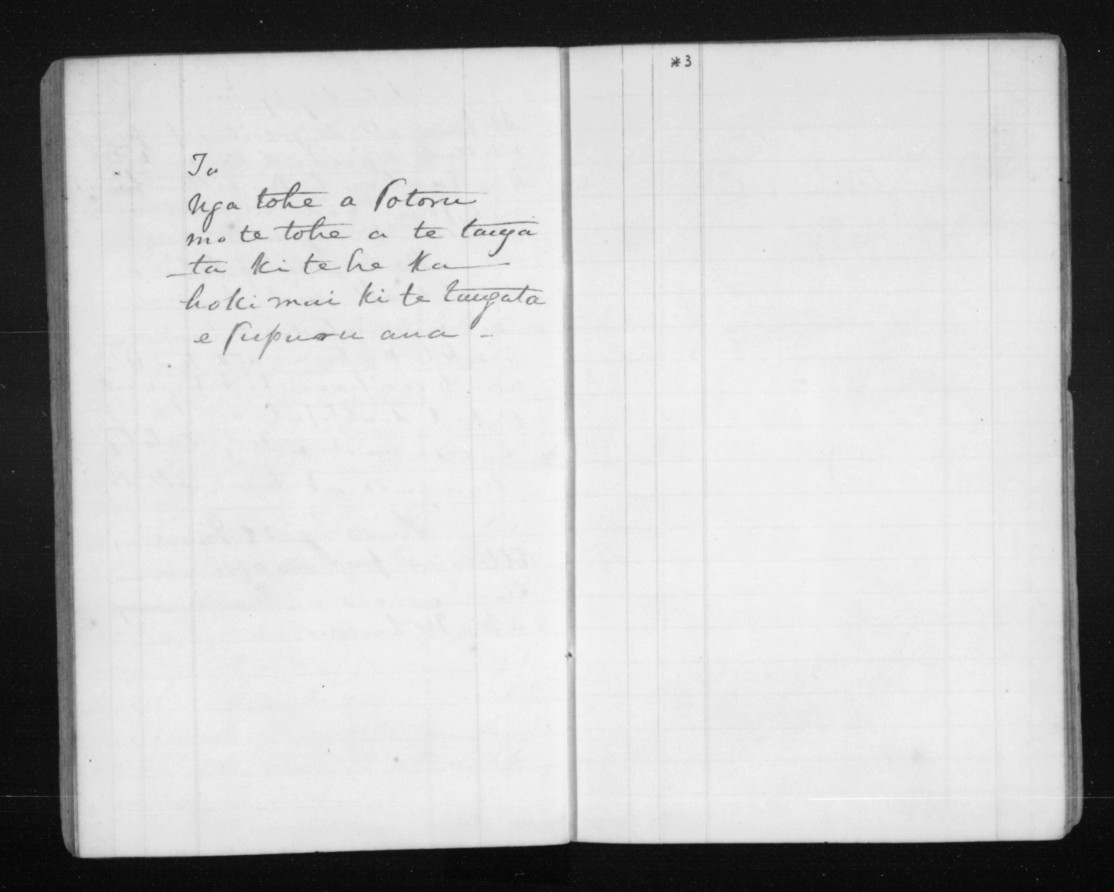 Ju
Nga tohe a Potoru
mo te tohe a te tanga
ta ki te he Ka
hoki mai ki te tangata
e Pupuru ana -
*3